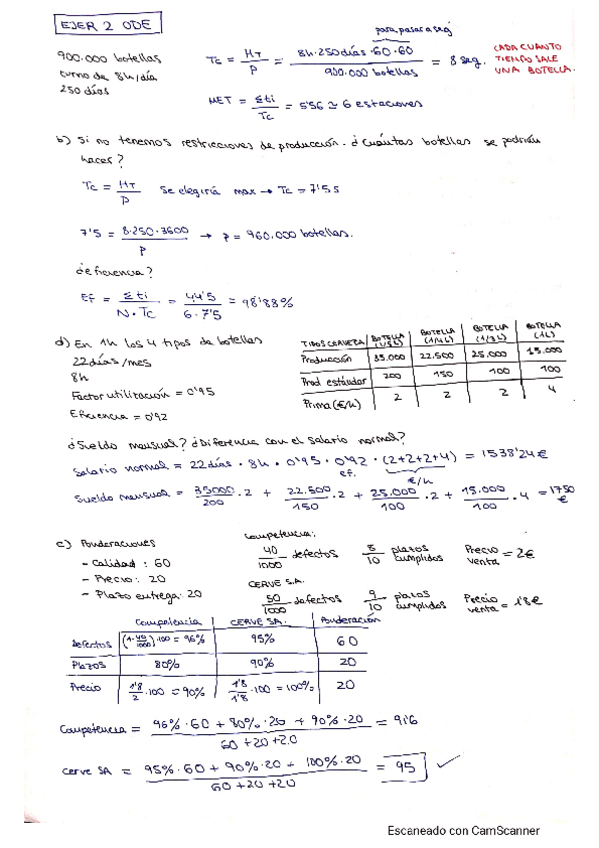 EJER 2 ODE
900.000 botellas
turno de 8h/día
250 días
para pasar a seg
Tc = HT / P = 8h·250días·60·60 / 900.000 botellas = 8 seg.
CADA CUANTO TIEMPO SALE UNA BOTELLA.
MET = Σti / Tc = 5'56 ≃ 6 estaciones
b) Si no tenemos restricciones de producción. ¿Cuántas botellas se podrían
hacer?
Tc = HT / P   Se elegiría max → Tc = 7'5 s
7'5 = 8·250·3600 / P → P = 960.000 botellas.
¿Eficiencia?
EF = Σti / N·Tc = 44'5 / 6·7'5 = 98'88%
d) En 1h los 4 tipos de botellas
22 días/mes
8h
Factor utilización = 0'95
Eficiencia = 0'92
TIPOS CERVEZA | BOTELLA (1/5 L) | BOTELLA (1/4 L) | BOTELLA (1/3 L) | BOTELLA (1 L)
Producción | 35.000 | 22.500 | 25.000 | 15.000
Prod estándar | 200 | 150 | 100 | 100
Prima (€/h) | 2 | 2 | 2 | 4
¿Sueldo mensual? ¿Diferencia con el salario normal?
Salario normal = 22 días · 8h · 0'95 · 0'92 · (2+2+2+4) = 1538'24 €
ef. €/h
Sueldo mensual = 35000/200 · 2 + 22.500/150 · 2 + 25.000/100 · 2 + 15.000/100 · 4 = 1750 €
c) Ponderaciones
- Calidad : 60
- Precio : 20
- Plazo entrega : 20
Competencia:
40/1000 defectos   8/10 plazos cumplidos   Precio venta = 2€
CERVE S.A.
50/1000 defectos   9/10 plazos cumplidos   Precio venta = 1'8€
Competencia | CERVE SA. | Ponderación
Defectos | (1-40/1000)·100 = 96% | 95% | 60
Plazos | 80% | 90% | 20
Precio | 1'8/2 ·100 = 90% | 1'8/1'8 ·100 = 100% | 20
Competencia = 96%·60 + 80%·20 + 90%·20 / 60+20+20 = 91'6
Cerve SA = 95%·60 + 90%·20 + 100%·20 / 60+20+20 = 95 ✓
Escaneado con CamScanner